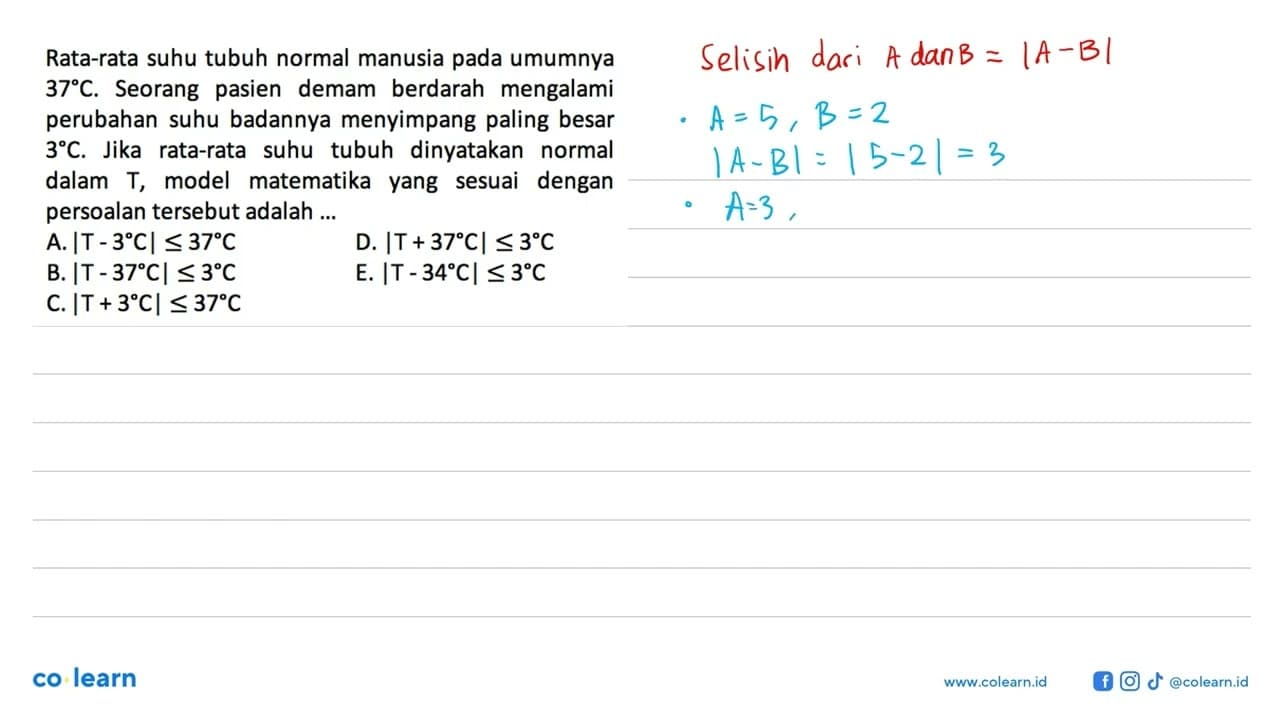 Rata-rata suhu tubuh normal manusia pada umumnya
37°C. Seorang pasien demam berdarah mengalami
perubahan suhu badannya menyimpang paling besar
3°C. Jika rata-rata suhu tubuh dinyatakan normal
dalam T, model matematika yang sesuai dengan
persoalan tersebut adalah ...
A. |T - 3°C| ≤ 37°C
D. |T + 37°C| ≤ 3°C
B. |T - 37°C| ≤ 3°C
E. |T - 34°C| ≤ 3°C
C. |T + 3°C| ≤ 37°C
Selisih dari A dan B = |A - B|
• A = 5, B = 2
|A - B| = |5 - 2| = 3
• A = 3,
co learn
www.colearn.id
@colearn.id